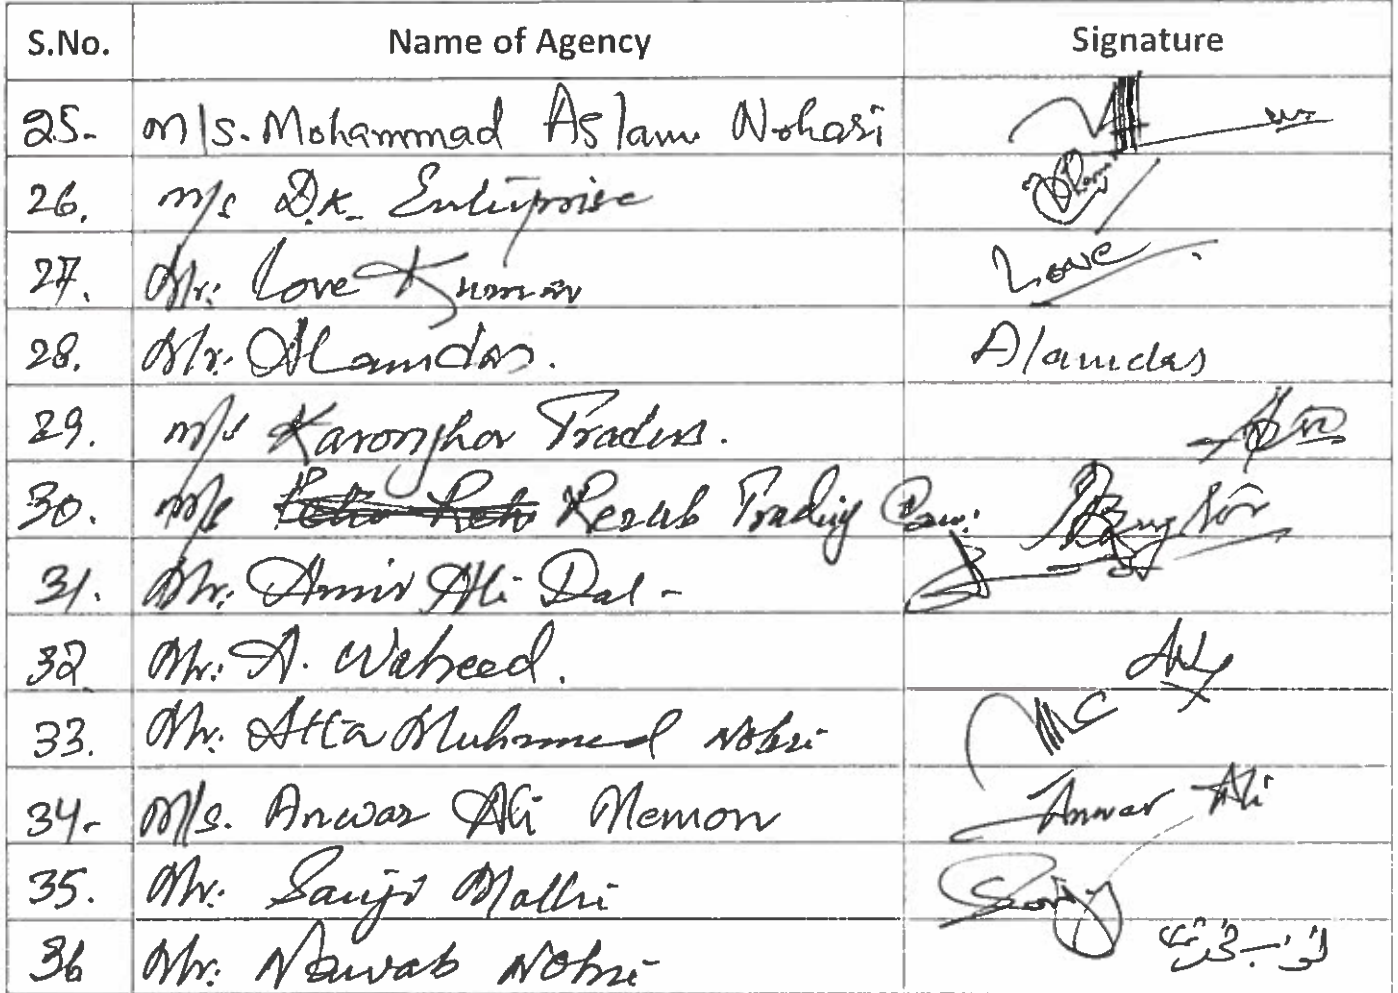 S.No. Name of Agency Signature
25- M/s. Mohammad Aslam Nohari
26. M/s D.K. Enterprise
27. Mr. Love Kumar Love
28. Mr. Alamdas. Alamdas
29. M/s Karonjhar Traders.
30. M/s Trading
31. Mr. Amir Ali Dal-
32 Mr. A. Waheed.
33. Mr. Atta Muhammed Nohri
34- M/s. Anwar Ali Memon Anwar Ali
35. Mr. Malhi
36 Mr. Nawab Nohri